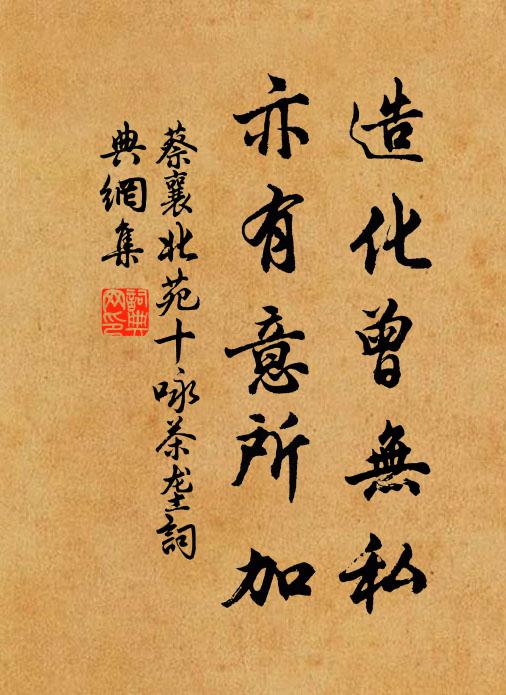 造化曾無私
亦有意所加
蔡襄北苑十咏茶垄詞
典網集
詞典
网印